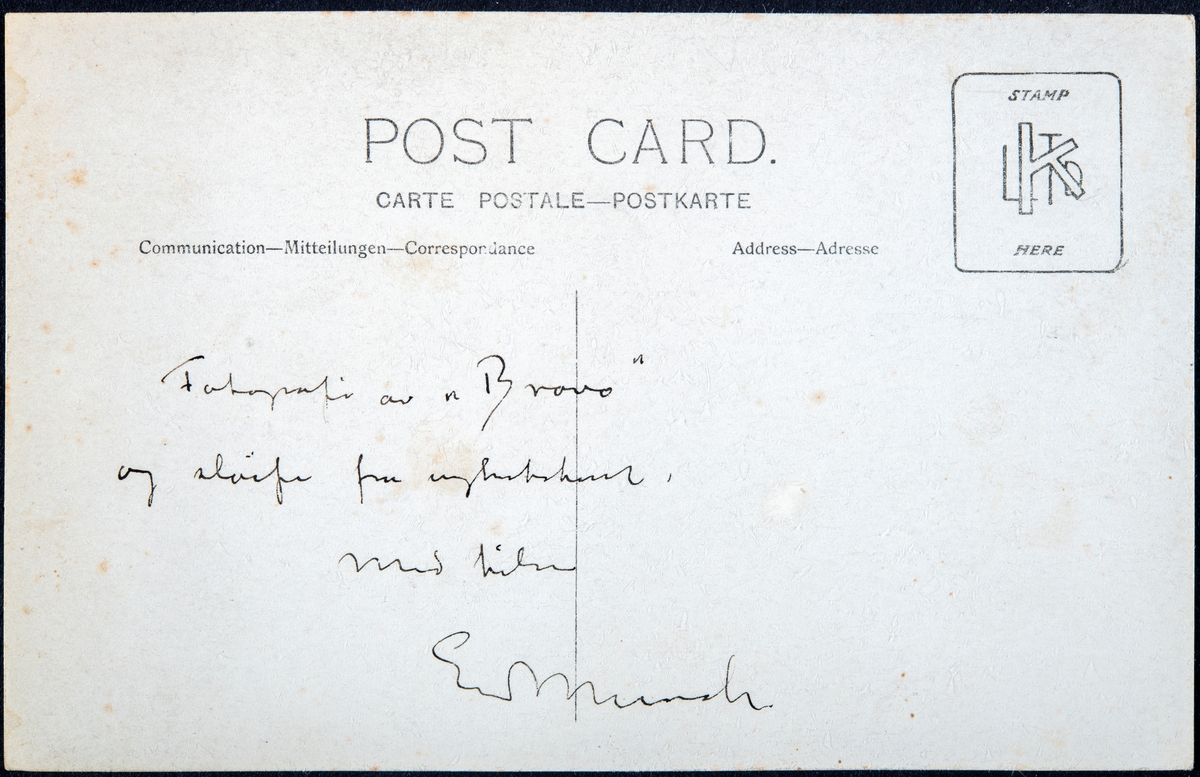 POST CARD.
CARTE POSTALE—POSTKARTE
Communication—Mitteilungen—Correspondance
Address—Adresse
STAMP
HERE
Fotografi av „Bravo"
og sløife fra
Med hilsen
Edv Munch